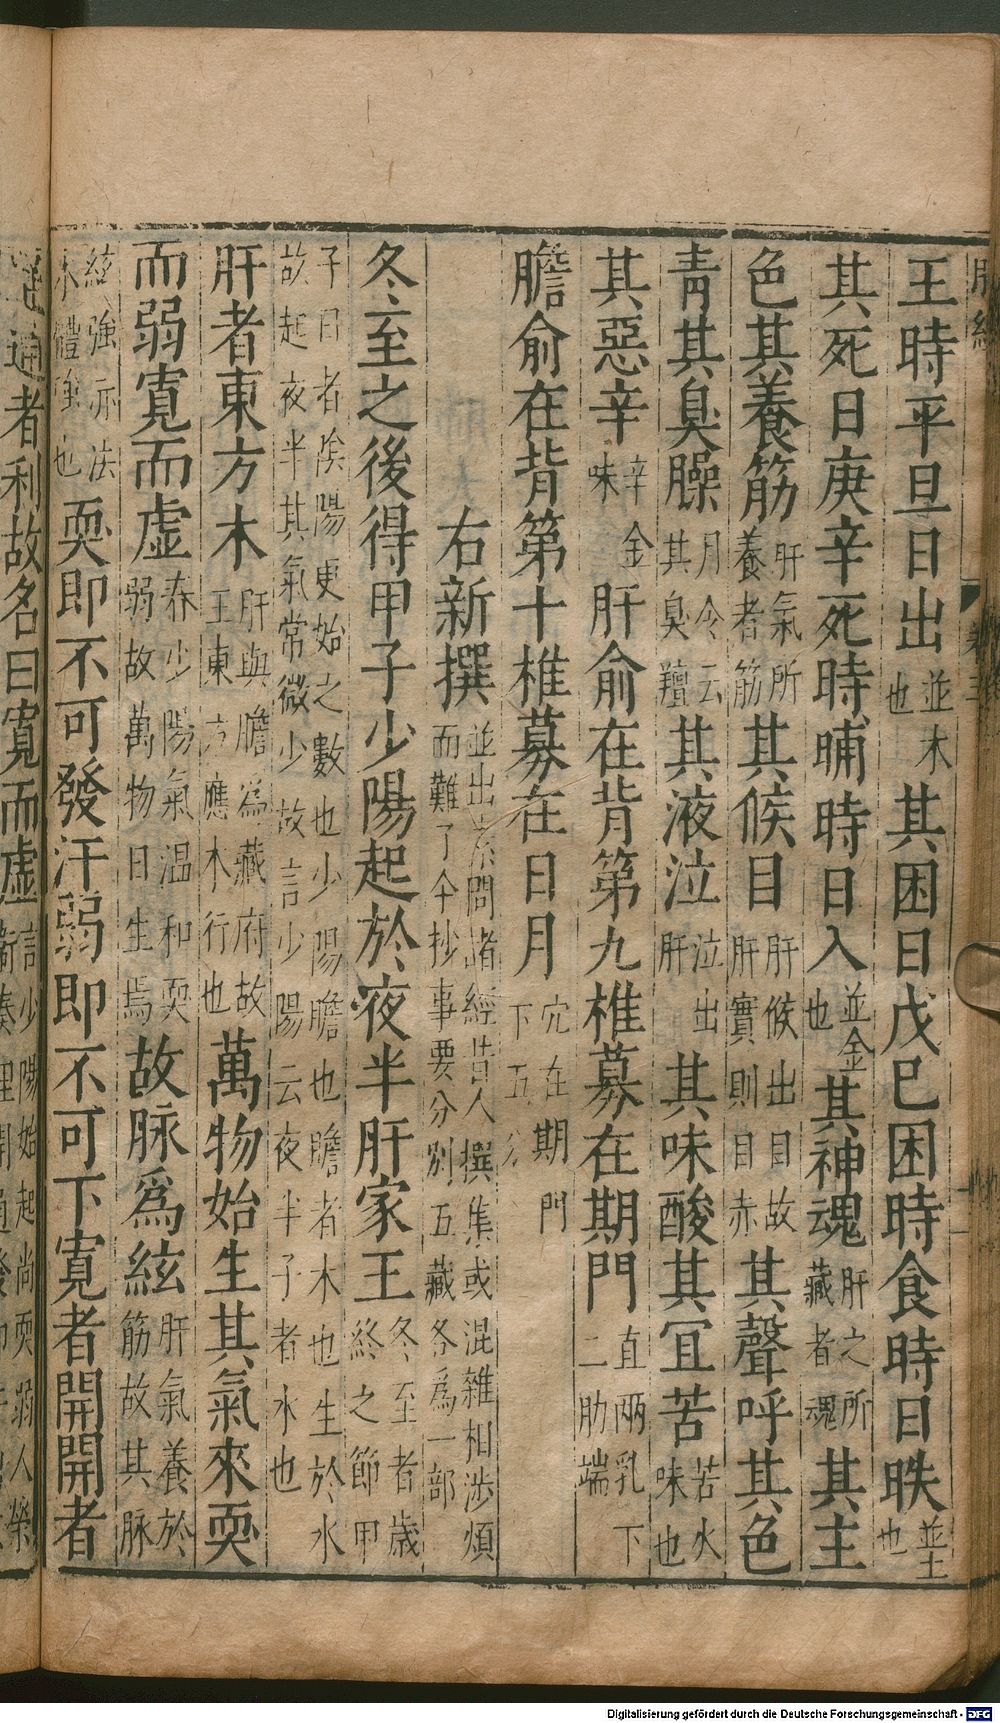 王時平旦日出並木也其困日戊巳困時食時日昳並土也
其死日庚辛死時晡時日入並金也其神魂肝之所藏者魂其主
色其養筋肝氣所養者筋其候目肝候出目故肝實則目赤其聲呼其色
青其臭臊月令云其臭羶其液泣泣出肝其味酸其宜苦苦火味也
其惡辛辛金味肝俞在背第九椎募在期門直兩乳下二肋端
膽俞在背第十椎募在日月穴在期門下五分
右新撰並出素問諸經昔人撰集或混雜相涉煩而難了今抄事要分別五藏各為一部
冬至之後得甲子少陽起於夜半肝家王冬至者歲終之節甲
子日者陰陽更始之數也少陽膽也膽者木也生於水故起夜半其氣常微少故言少陽云夜半子者水也
肝者東方木肝與膽為藏府故王東方應木行也萬物始生其氣來耎
而弱寬而虛春少陽氣温和耎弱故萬物日生焉故脉為絃肝氣養於筋故其脉
絃強亦法木體強也耎即不可發汗弱即不可下寛者開開者
通通者利故名曰寛而虛言少陽始起尚耎弱人榮衛腠理開通發即
脉經
卷三
Digitalisierung gefördert durch die Deutsche Forschungsgemeinschaft - DFG